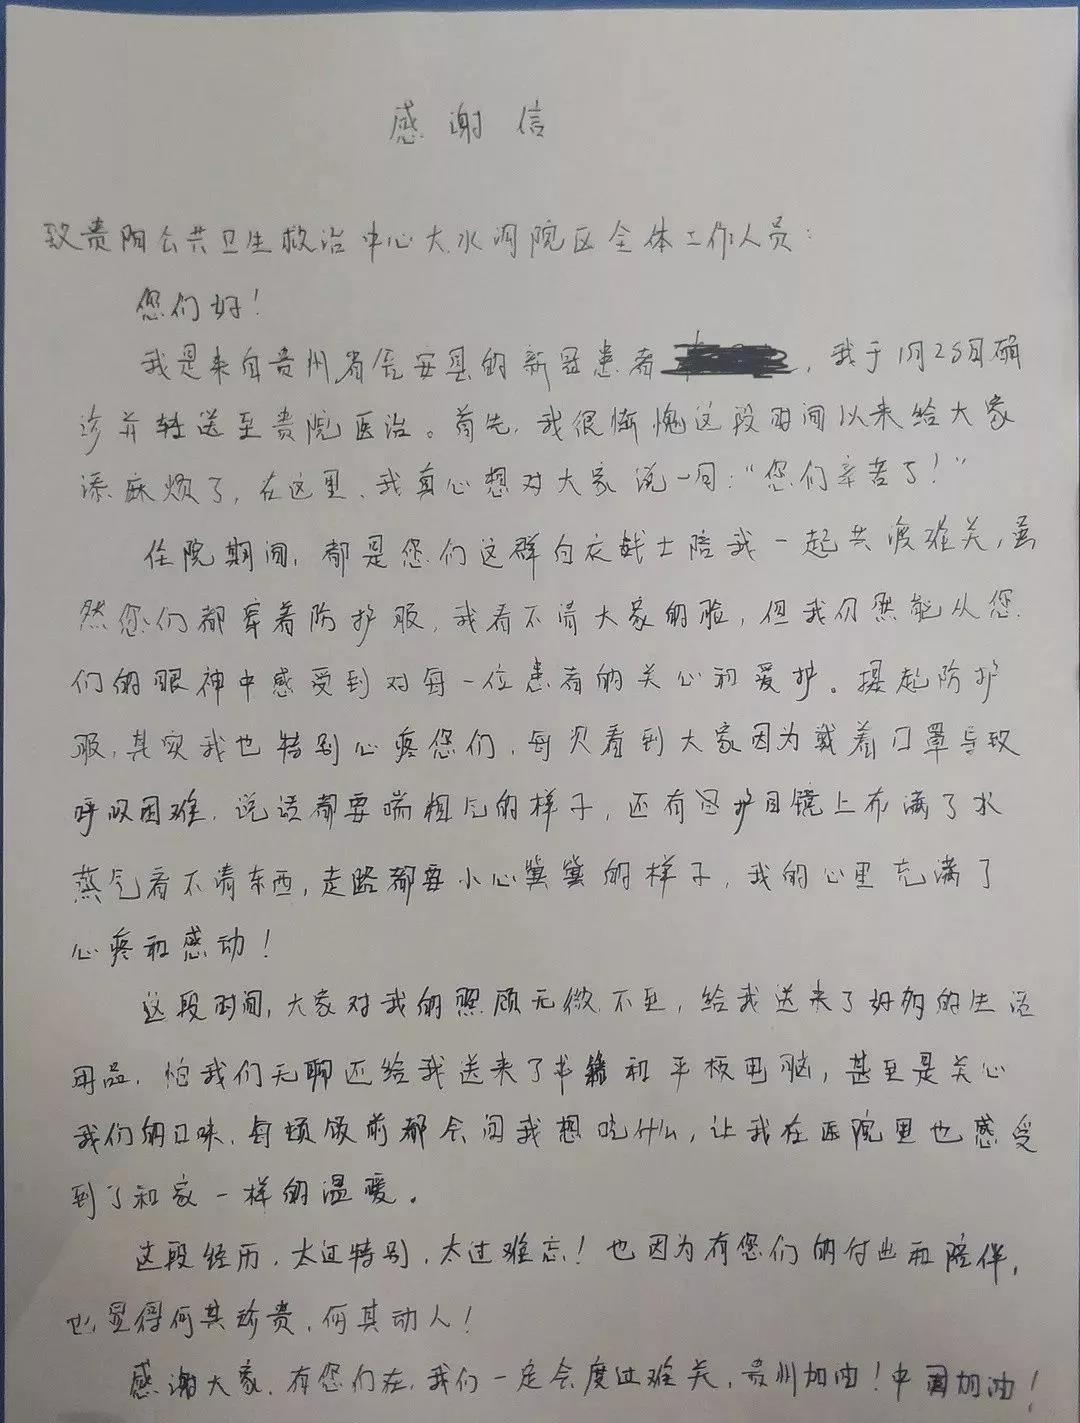 感谢信
致贵阳公共卫生救治中心大水沟院区全体工作人员：
您们好！
我是来自贵州省长安县的新冠患者，我于1月28日确
诊并转送至贵院医治。首先，我很惭愧这段时间以来给大家
添麻烦了，在这里、我真心想对大家说一句：“您们辛苦了！”
住院期间，都是您们这群白衣战士陪我一起共渡难关，虽
然您们都穿着防护服，我看不清大家的脸，但我仍然能从您
们的眼神中感受到对每一位患者的关心和爱护。提起防护
服，其实我也特别心疼您们，每次看到大家因为戴着口罩导致
呼吸困难，说话都要喘粗气的样子，还有因护目镜上布满了水
蒸气看不清东西，走路都要小心翼翼的样子，我的心里充满了
心疼和感动！
这段时间，大家对我的照顾无微不至，给我送来了好多的生活
用品，怕我们无聊还给我送来了书籍和平板电脑，甚至是关心
我们的口味，每顿饭前都会问我想吃什么，让我在医院里也感受
到了和家一样的温暖。
这段经历，太过特别，太过难忘！也因为有您们的付出和陪伴，
也显得何其珍贵，何其动人！
感谢大家，有您们在，我们一定会度过难关，贵州加油！中国加油！